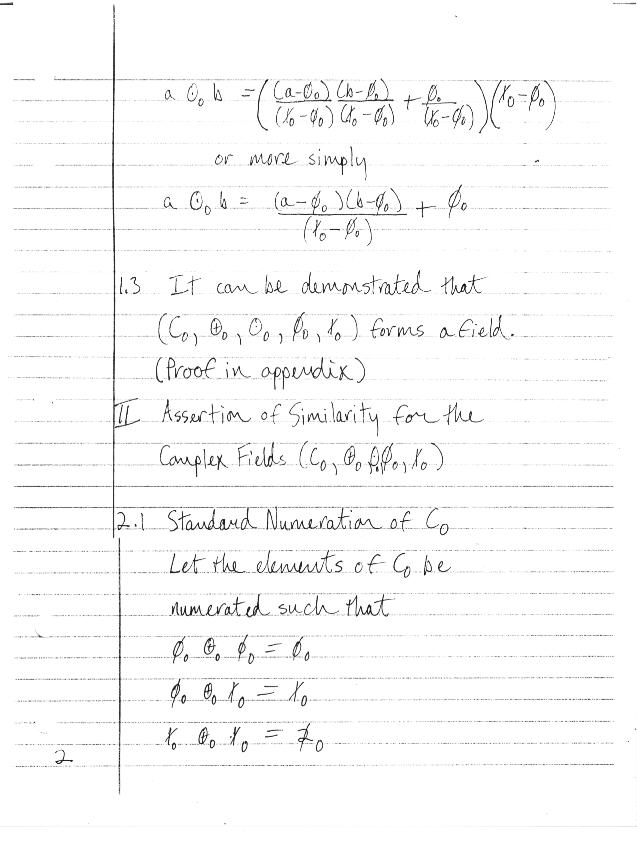 a ⊙₀ b = ( (a-∅₀)(b-∅₀) / (1̸₀-∅₀)(1̸₀-∅₀) + ∅₀ / (1̸₀-∅₀) ) (1̸₀-∅₀)
or more simply
a ⊙₀ b = (a-∅₀)(b-∅₀) / (1̸₀-∅₀) + ∅₀
1.3 It can be demonstrated that
(C₀, ⊕₀, ⊙₀, ∅₀, 1̸₀) forms a field.
(Proof in appendix)
II Assertion of Similarity for the
Complex Fields (C₀, ⊕₀, ⊙₀, ∅₀, 1̸₀)
2.1 Standard Numeration of C₀
Let the elements of C₀ be
numerated such that
∅₀ ⊕₀ ∅₀ = ∅₀
∅₀ ⊕₀ 1̸₀ = 1̸₀
1̸₀ ⊕₀ 1̸₀ = 2̸₀
2